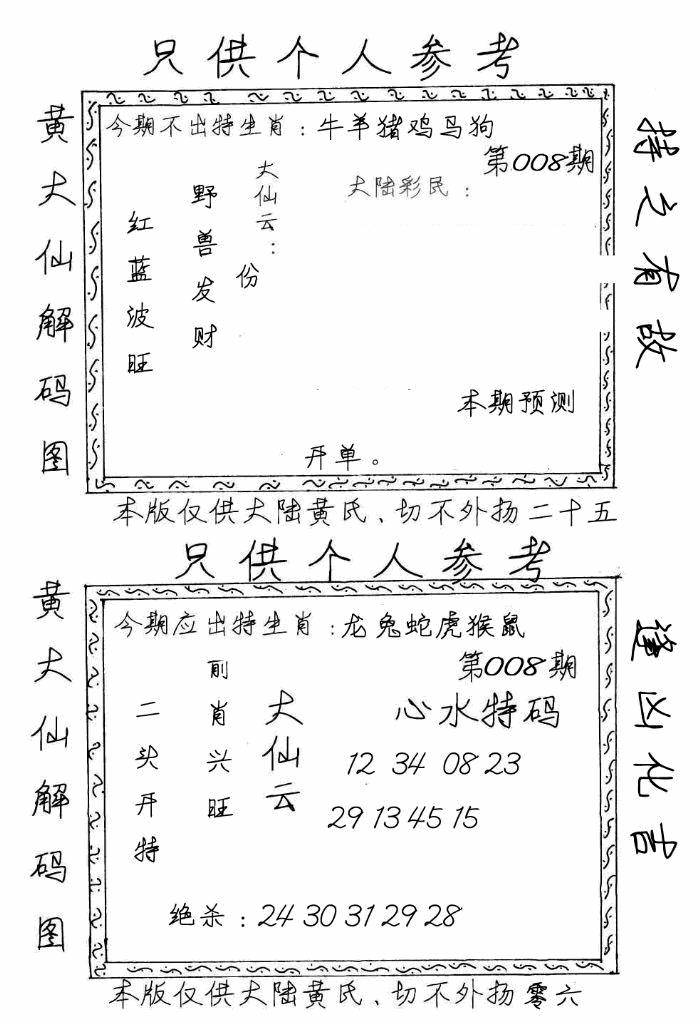 只供个人参考
黄大仙解码图
今期不出特生肖：牛羊猪鸡马狗
第008期
大陆彩民：
大仙云：
份
野兽发财
红蓝波旺
本期预测
开单。
持之有故
本版仅供大陆黄氏、切不外扬二十五
只供个人参考
黄大仙解码图
今期应出特生肖：龙兔蛇虎猴鼠
第008期
心水特码
大仙云
前肖兴旺
二头开特
12 34 08 23
29 13 45 15
绝杀：24 30 31 29 28
逢凶化吉
本版仅供大陆黄氏、切不外扬零六